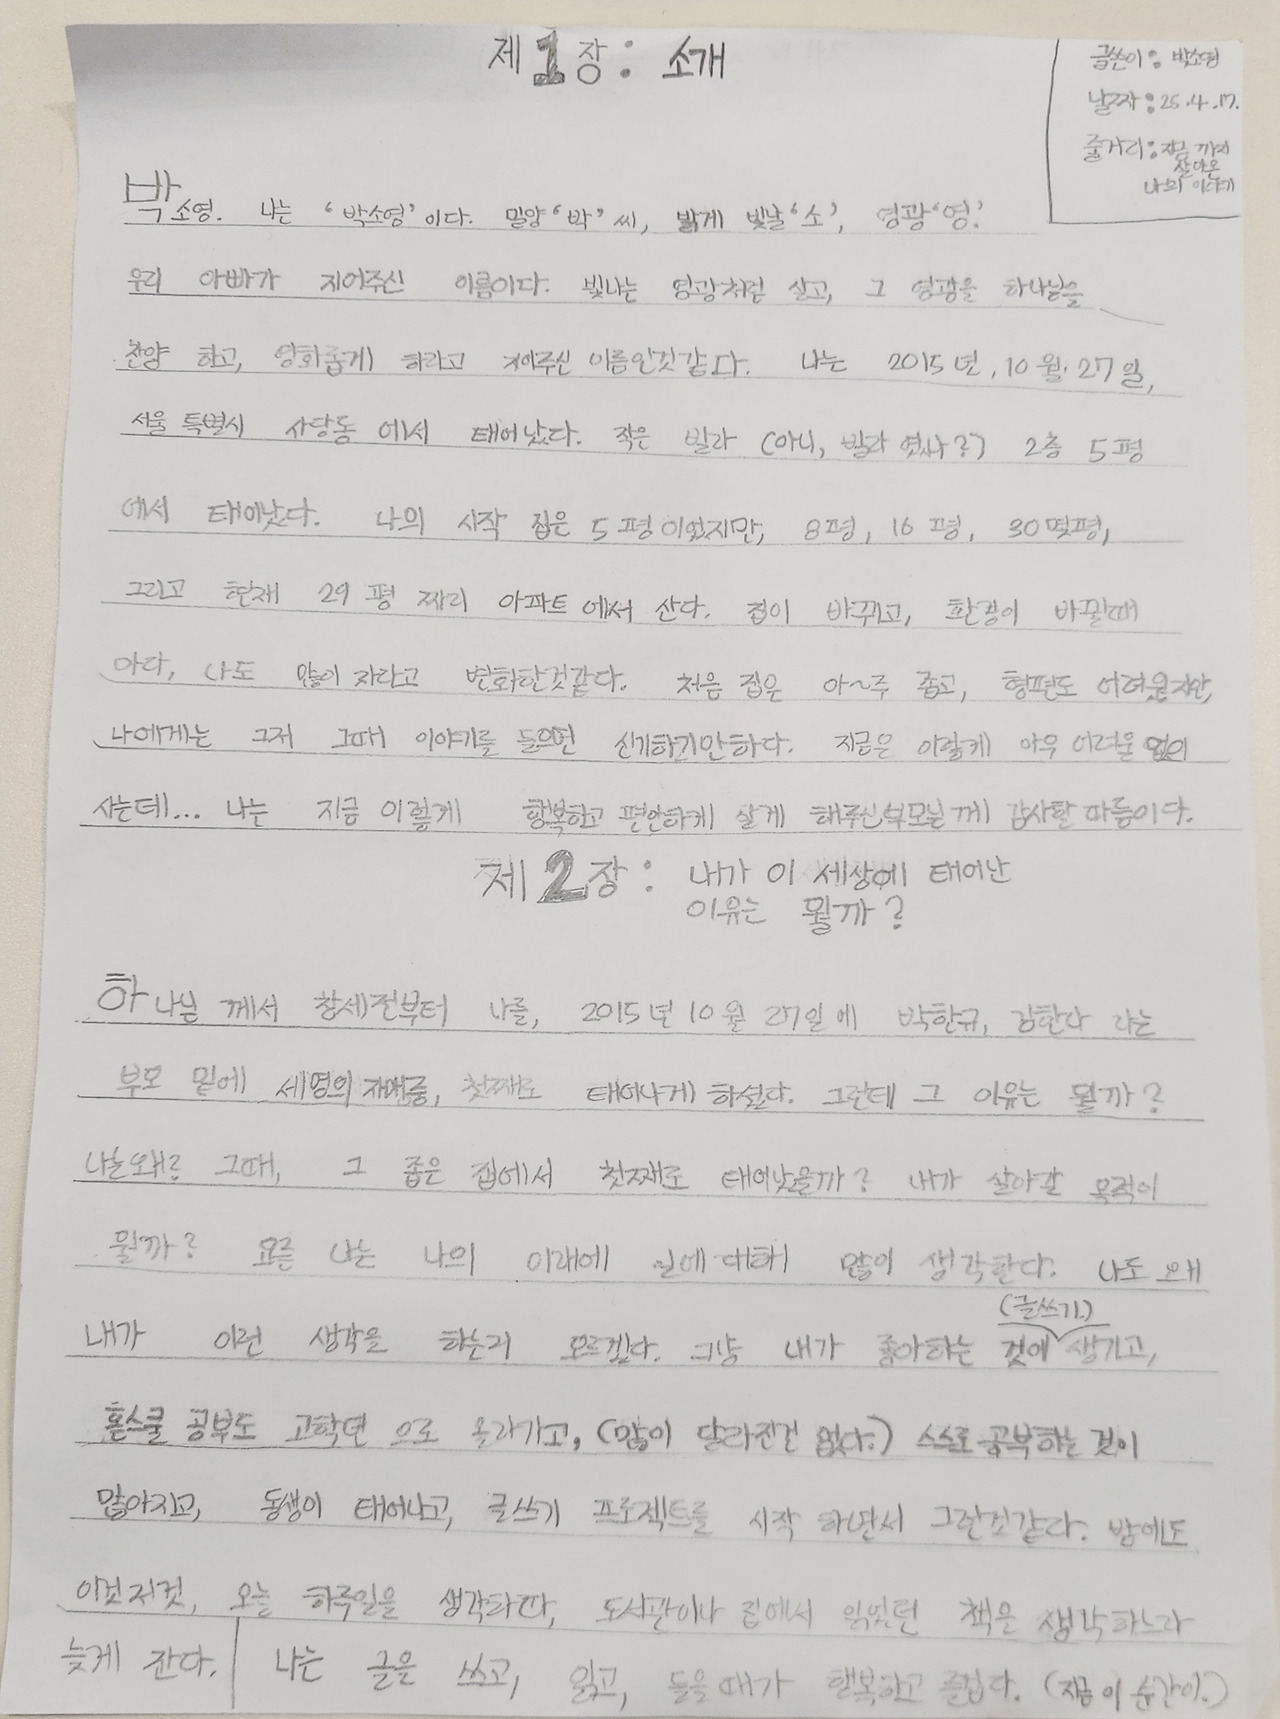 제1장: 소개
글쓴이: 박소영
날짜: 25.4.17.
줄거리: 지금 까지
살아온
나의 이야기
박소영. 나는 '박소영'이다. 밀양'박'씨, 밝게 빛날'소', 영광'영'.
우리 아빠가 지어주신 이름이다. 빛나는 영광처럼 살고, 그 영광을 하나님을
찬양 하고, 영화롭게 하라고 지어주신 이름인것같다. 나는 2015년, 10월 27일,
서울 특별시 사당동 에서 태어났다. 작은 빌라 (아니, 빌라 였나?) 2층 5평
에서 태어났다. 나의 시작 집은 5평이었지만, 8평, 16평, 30몇평,
그리고 현재 29평 짜리 아파트에서 산다. 집이 바뀌고, 환경이 바뀔때
마다, 나도 많이 자라고 변화한것같다. 처음 집은 아~주 좁고, 형편도 어려웠지만,
나에게는 그저 그때 이야기를 들으면 신기하기만하다. 지금은 이렇게 아무 어려움 없이
사는데... 나는 지금 이렇게 행복하고 편안하게 살게 해주신 부모님께 감사할 따름이다.
제2장: 내가 이 세상에 태어난
이유는 뭘까?
하나님 께서 창세전부터 나를, 2015년 10월 27일에 박한규, 김한나 라는
부모 밑에 세명의 자매중, 첫째로 태어나게 하셨다. 그런데 그 이유는 뭘까?
나는 왜? 그때, 그 좁은 집에서 첫째로 태어났을까? 내가 살아갈 목적이
뭘까? 요즘 나는 나의 미래에 일에 대해 많이 생각한다. 나도 왜
내가 이런 생각을 하는지 모르겠다. 그냥 내가 좋아하는 것이 (글쓰기.) 생기고,
홈스쿨 공부도 고학년 으로 올라가고, (많이 달라진건 없다.) 스스로 공부하는 것이
많아지고, 동생이 태어나고, 글쓰기 프로젝트를 시작 하면서 그런것같다. 밤에도
이것저것, 오늘 하루일을 생각하다, 도서관이나 집에서 읽었던 책을 생각하느라
늦게 잔다. 나는 글을 쓰고, 읽고, 들을때가 행복하고 즐겁다. (지금 이 순간이.)